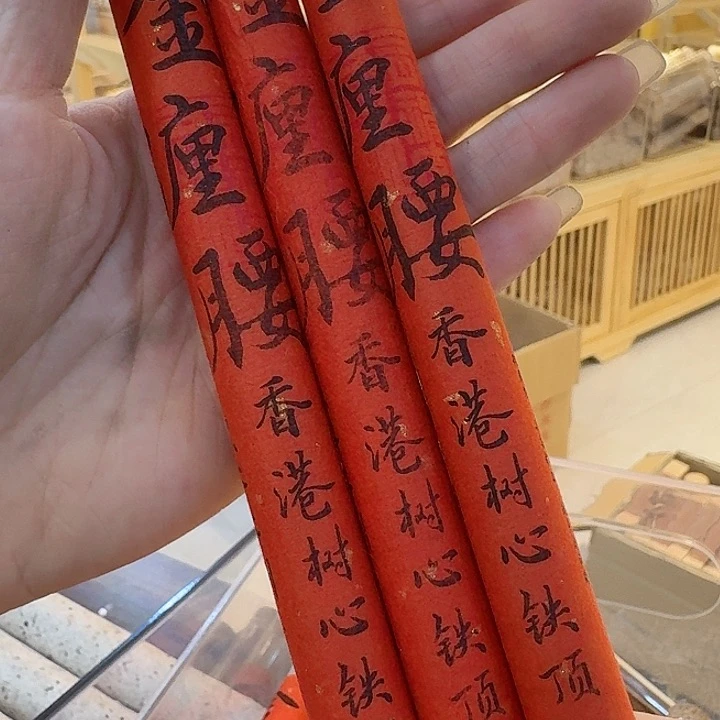 金㢆腰香港树心铁
金㢆腰香港树心铁顶
㢆腰香港树心铁顶